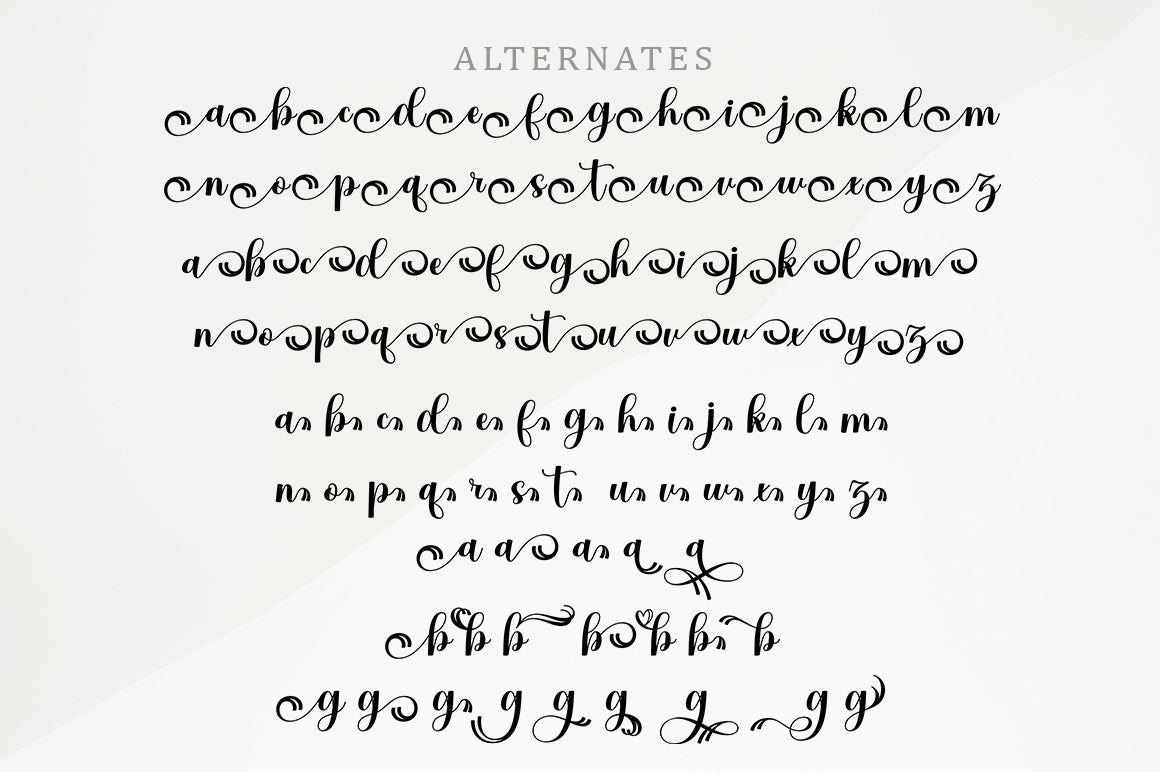 ALTERNATES
a b c d e f g h i j k l m
n o p q r s t u v w x y z
a b c d e f g h i j k l m
n o p q r s t u v w x y z
a b c d e f g h i j k l m
n o p q r s t u v w x y z
a a a a a
b b b b b b b
g g g g g g g g g